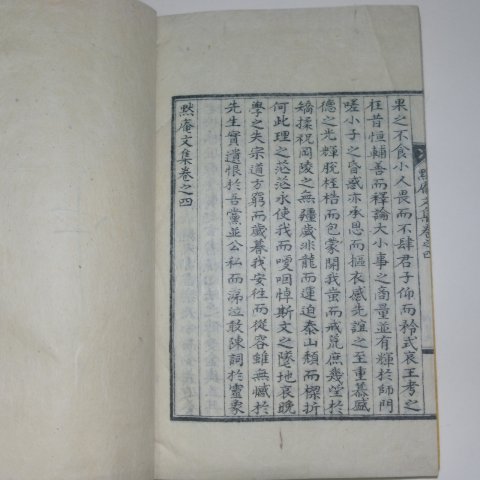 黙庵文集卷之四
果之不食小人畏而不肆君子仰而矜式哀王考之
枉昔恒輔善而釋論大小事之商量並有輝於師門
嗟小子之昏惑亦承思而摳衣感先誼之至重慕盛
德之光輝脫桎梏而包蒙開我蚩而戒荒庶幾瑩於
矯揉祝岡陵之無疆歲非龍而運迫泰山頹而樑折
何此理之茫茫永使我而噯咽悼斯文之墜地哀晚
學之失宗道方窮而歲暮我安往而從容雖無憾於
先生實遺恨於吾黨並公私而涕泣敢陳詞於靈象
黙庵文集卷之四